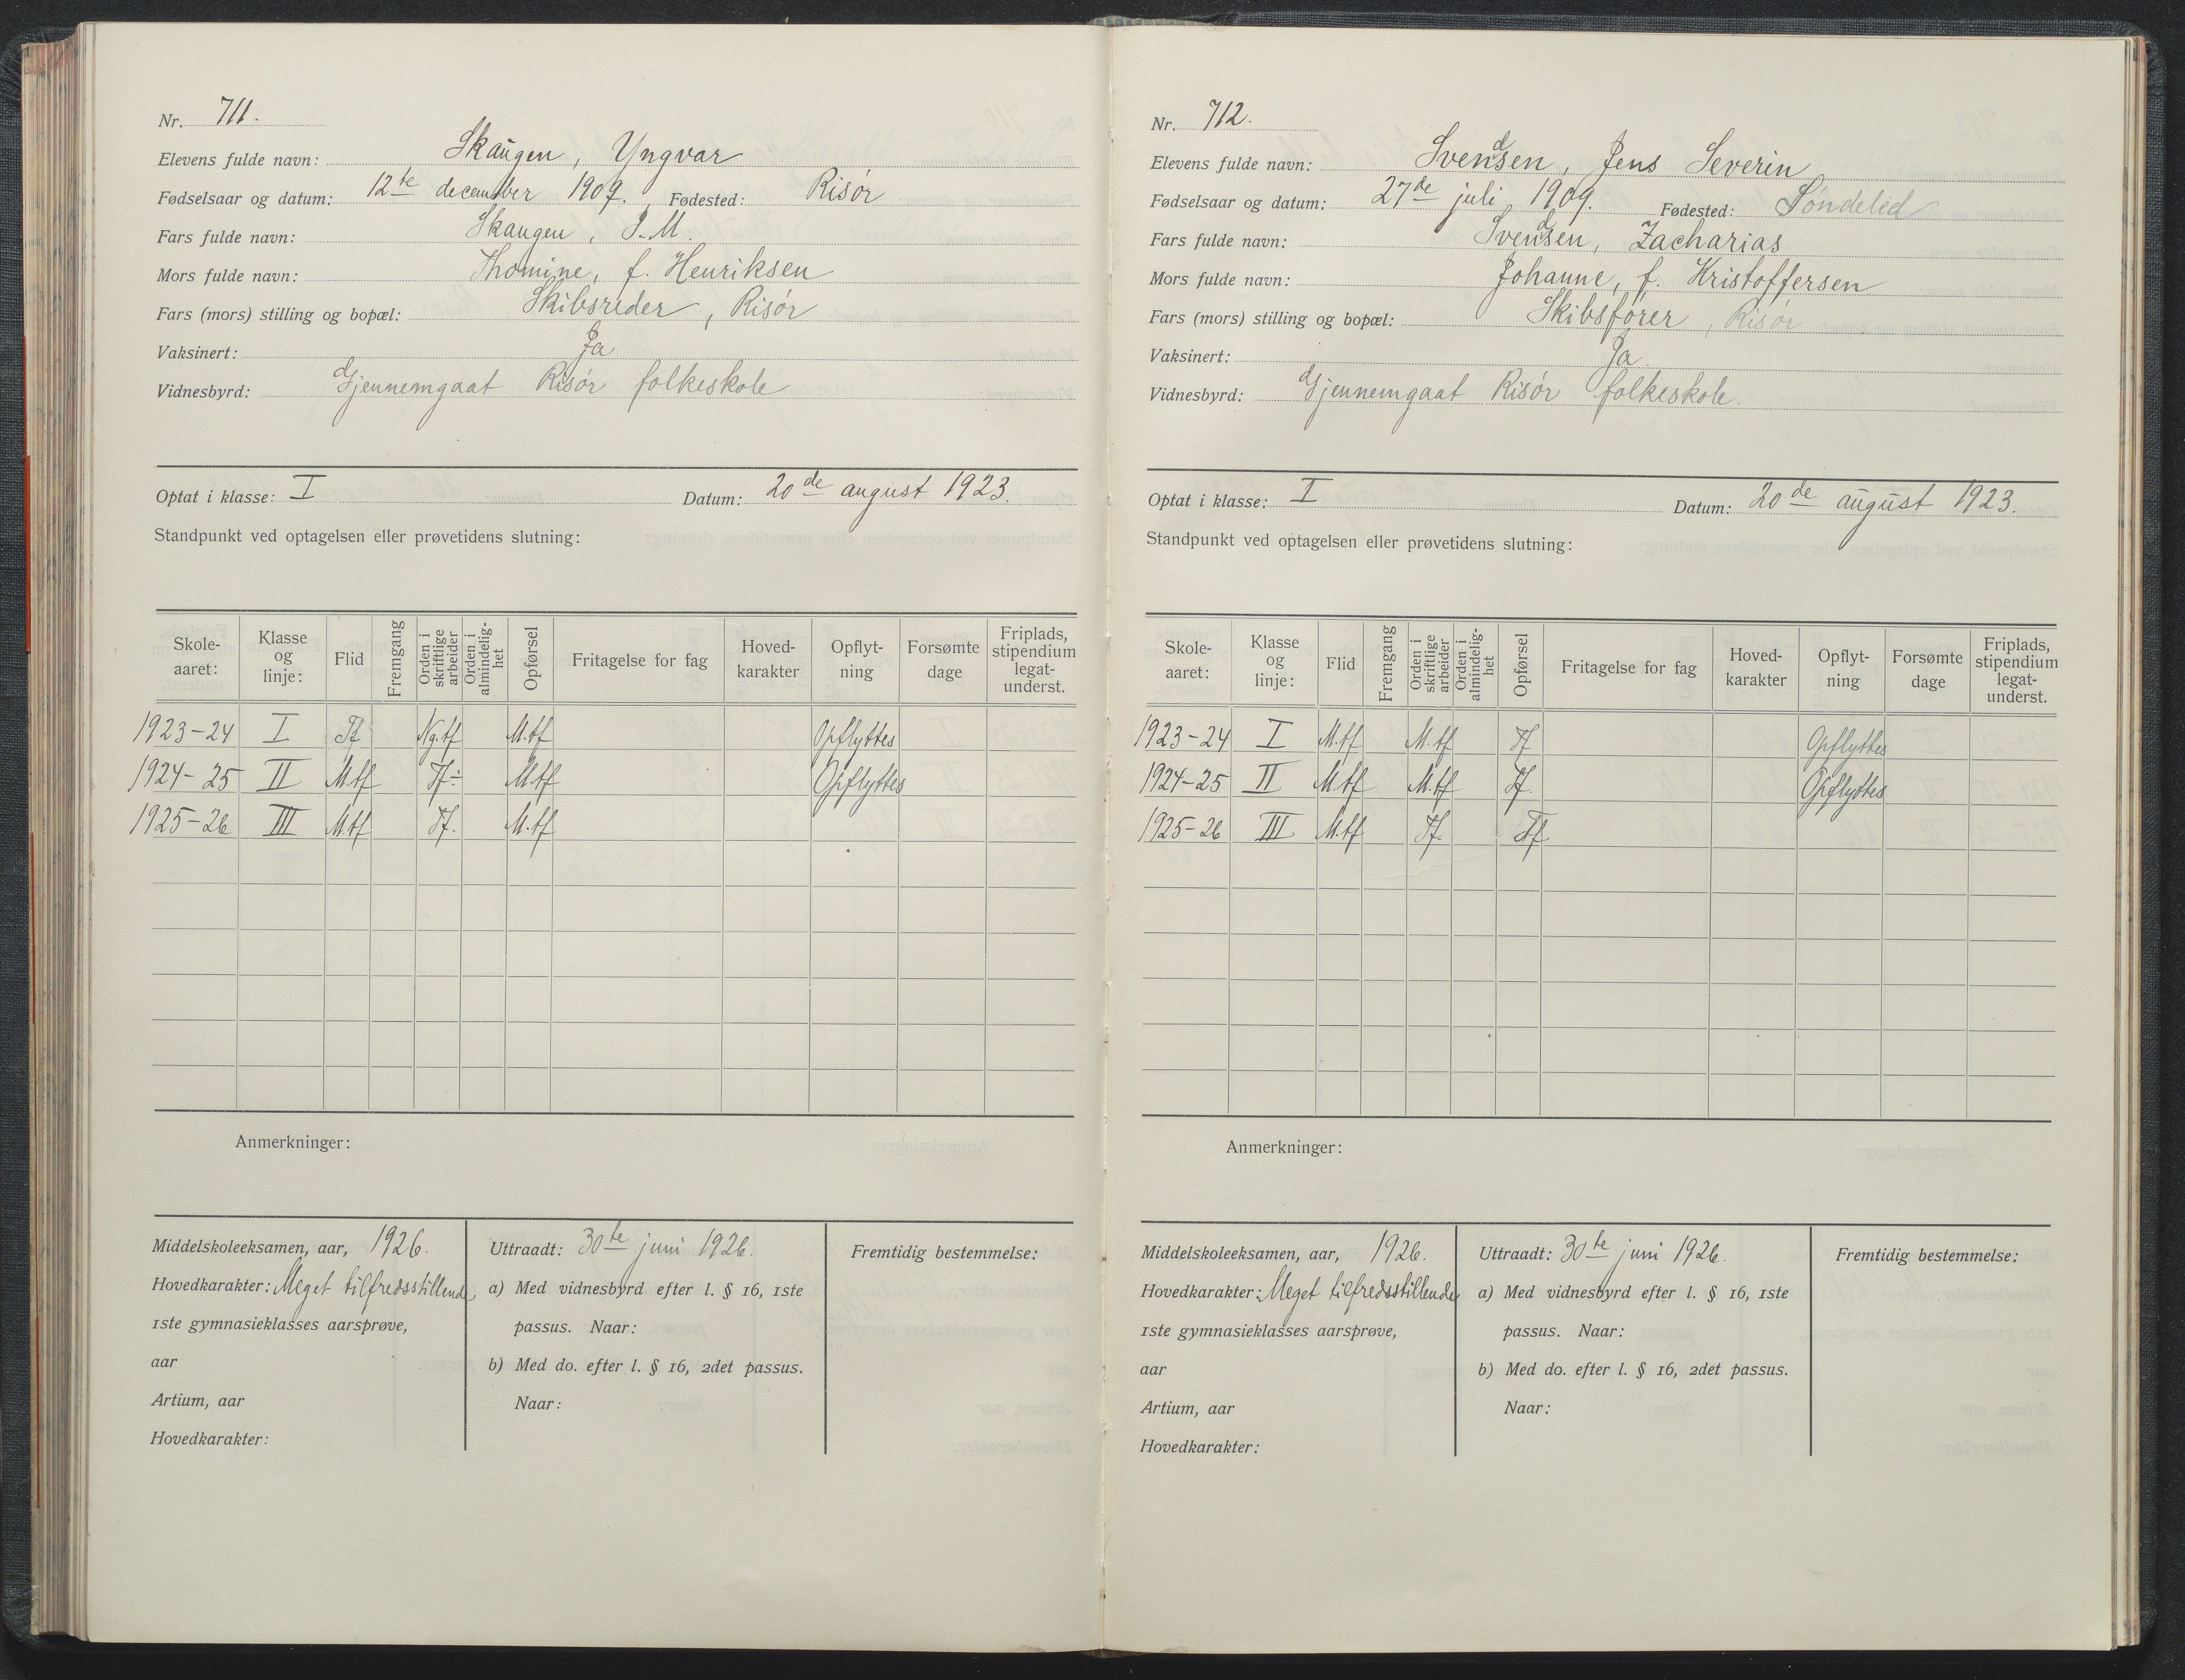 Nr. 711.
Elevens fulde navn: Skaugen, Yngvar
Fødselsaar og datum: 12te december 1909. Fødested: Risør
Fars fulde navn: Skaugen, P. M.
Mors fulde navn: Thomine, f. Henriksen
Fars (mors) stilling og bopæl: Skibsreder, Risør
Vaksinert: Ja
Vidnesbyrd: Gjennemgaat Risør folkeskole
Optat i klasse: I Datum: 20de august 1923.
Standpunkt ved optagelsen eller prøvetidens slutning:
Skole-aaret: Klasse og linje: Flid Fremgang Orden i skriftlige arbeider Orden i almindelig-het Opførsel Fritagelse for fag Hoved-karakter Opflyt-ning Forsømte dage Friplads, stipendium legat-underst.
1923-24 I Tf Ng.tf M.tf Opflyttes
1924-25 II M.tf Tf÷ M.tf Opflyttes
1925-26 III M.tf Tf. M.tf
Anmerkninger:
Middelskoleeksamen, aar, 1926.
Hovedkarakter: Meget tilfredsstillende
1ste gymnasieklasses aarsprøve,
aar
Artium, aar
Hovedkarakter:
Uttraadt: 30te juni 1926.
a) Med vidnesbyrd efter l. § 16, 1ste
passus. Naar:
b) Med do. efter l. § 16, 2det passus.
Naar:
Fremtidig bestemmelse:
Nr. 712.
Elevens fulde navn: Svendsen, Jens Severin
Fødselsaar og datum: 27de juli 1909. Fødested: Søndeled
Fars fulde navn: Svendsen, Zacharias
Mors fulde navn: Johanne, f. Kristoffersen
Fars (mors) stilling og bopæl: Skibsfører, Risør
Vaksinert: Ja
Vidnesbyrd: Gjennemgaat Risør folkeskole.
Optat i klasse: I Datum: 20de august 1923.
Standpunkt ved optagelsen eller prøvetidens slutning:
Skole-aaret: Klasse og linje: Flid Fremgang Orden i skriftlige arbeider Orden i almindelig-het Opførsel Fritagelse for fag Hoved-karakter Opflyt-ning Forsømte dage Friplads, stipendium legat-underst.
1923-24 I M.tf M.tf Tf Opflyttes
1924-25 II M.tf M.tf Tf. Opflyttes
1925-26 III M.tf Tf. Tf
Anmerkninger:
Middelskoleeksamen, aar, 1926.
Hovedkarakter: Meget tilfredsstillende
1ste gymnasieklasses aarsprøve,
aar
Artium, aar
Hovedkarakter:
Uttraadt: 30te juni 1926.
a) Med vidnesbyrd efter l. § 16, 1ste
passus. Naar:
b) Med do. efter l. § 16, 2det passus.
Naar:
Fremtidig bestemmelse: